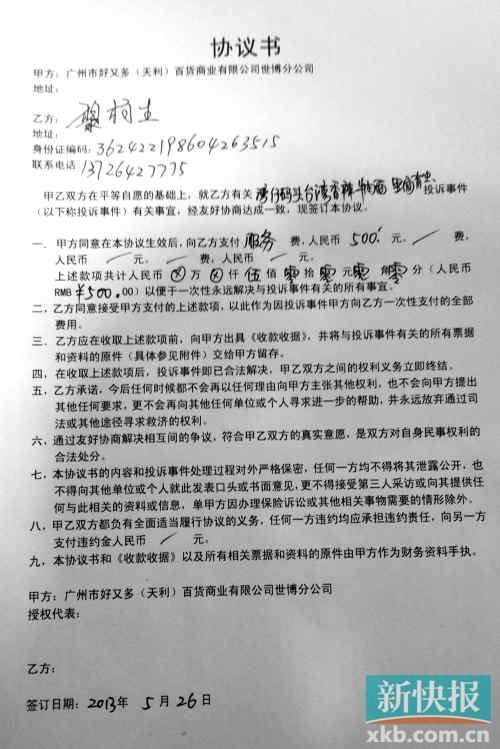 协议书
甲方：广州市好又多（天利）百货商业有限公司世博分公司
地址：
乙方：
地址：
身份证编码：362422198604263515
联系电话：13726427775
甲乙双方在平等自愿的基础上，就乙方有关 湾仔码头台湾香 投诉事件
（以下称投诉事件）有关事宜，经友好协商达成一致，现签订本协议。
一、甲方同意在本协议生效后，向乙方支付 服务 费，人民币 500 元。/ 费，
人民币 / 元。/ 费，人民币 / 元。
上述款项共计人民币 ⊗ 万 ⊗ 仟 伍 佰 零 拾 零 元 零 角 零 分（人民币
RMB ¥500.00）以便于一次性永远解决与投诉事件有关的所有事宜。
二、乙方同意接受甲方支付的上述款项，以此作为因投诉事件甲方向乙方一次性支付的全部
费用。
三、乙方应在收取上述款项前，向甲方出具《收款收据》，并将与投诉事件有关的所有票据
和资料的原件（具体参见附件）交给甲方留存。
四、在收取上述款项后，投诉事件即已合法解决，甲乙双方之间的权利义务立即终结。
五、乙方承诺，今后任何时候都不会再以任何理由向甲方主张其他权利，也不会向甲方提出
其他任何要求，更不会再向其他任何单位或个人寻求进一步的帮助，并永远放弃通过司
法或其他途径寻求救济的权利。
六、通过友好协商解决相互间的争议，符合甲乙双方的真实意愿，是双方对自身民事权利的
合法处分。
七、本协议书的内容和投诉事件处理过程对外严格保密，任何一方均不得将其泄露公开，也
不得向其他单位或个人就此发表口头或书面意见，更不得接受第三人采访或向其提供任
何与此相关的资料或信息，单甲方因办理保险诉讼或其他相关事物需要的情形除外。
八、甲乙双方都负有全面适当履行协议的义务，任何一方违约均应承担违约责任，向另一方
支付违约金人民币 / 元。
九、本协议书和《收款收据》以及所有相关票据和资料的原件由甲方作为财务资料手执。
甲方：广州市好又多（天利）百货商业有限公司世博分公司
授权代表：
乙方：
签订日期：2013年 5 月 26 日
新快报
xkb.com.cn